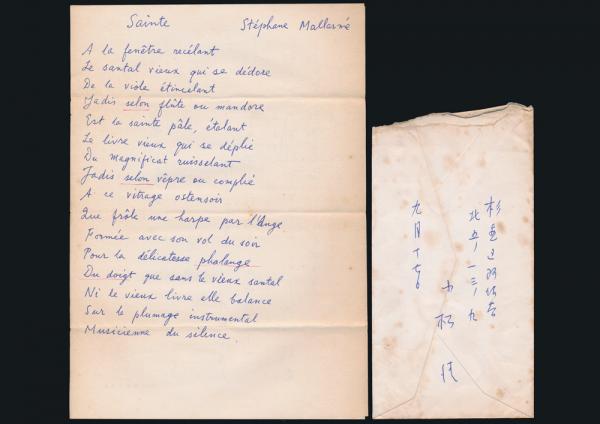 Sainte Stéphane Mallarmé
A la fenêtre recélant
Le santal vieux qui se dédore
De la viole étincelant
Jadis selon flûte ou mandore
Est la sainte pâle, étalant
Le livre vieux qui se déplié
Du magnificat ruisselant
Jadis selon vêpre ou complié
A ce vitrage ostensoir
Que frôle une harpe par l'Ange
Formée avec son vol du soir
Pour la délicatesse phalange
Du doigt que sans le vieux santal
Ni le vieux livre elle balance
Sur le plumage instrumental
Musicienne du silence.
杉並区阿佐谷
北五ノ一三ノ九
小松 清
九月十七日